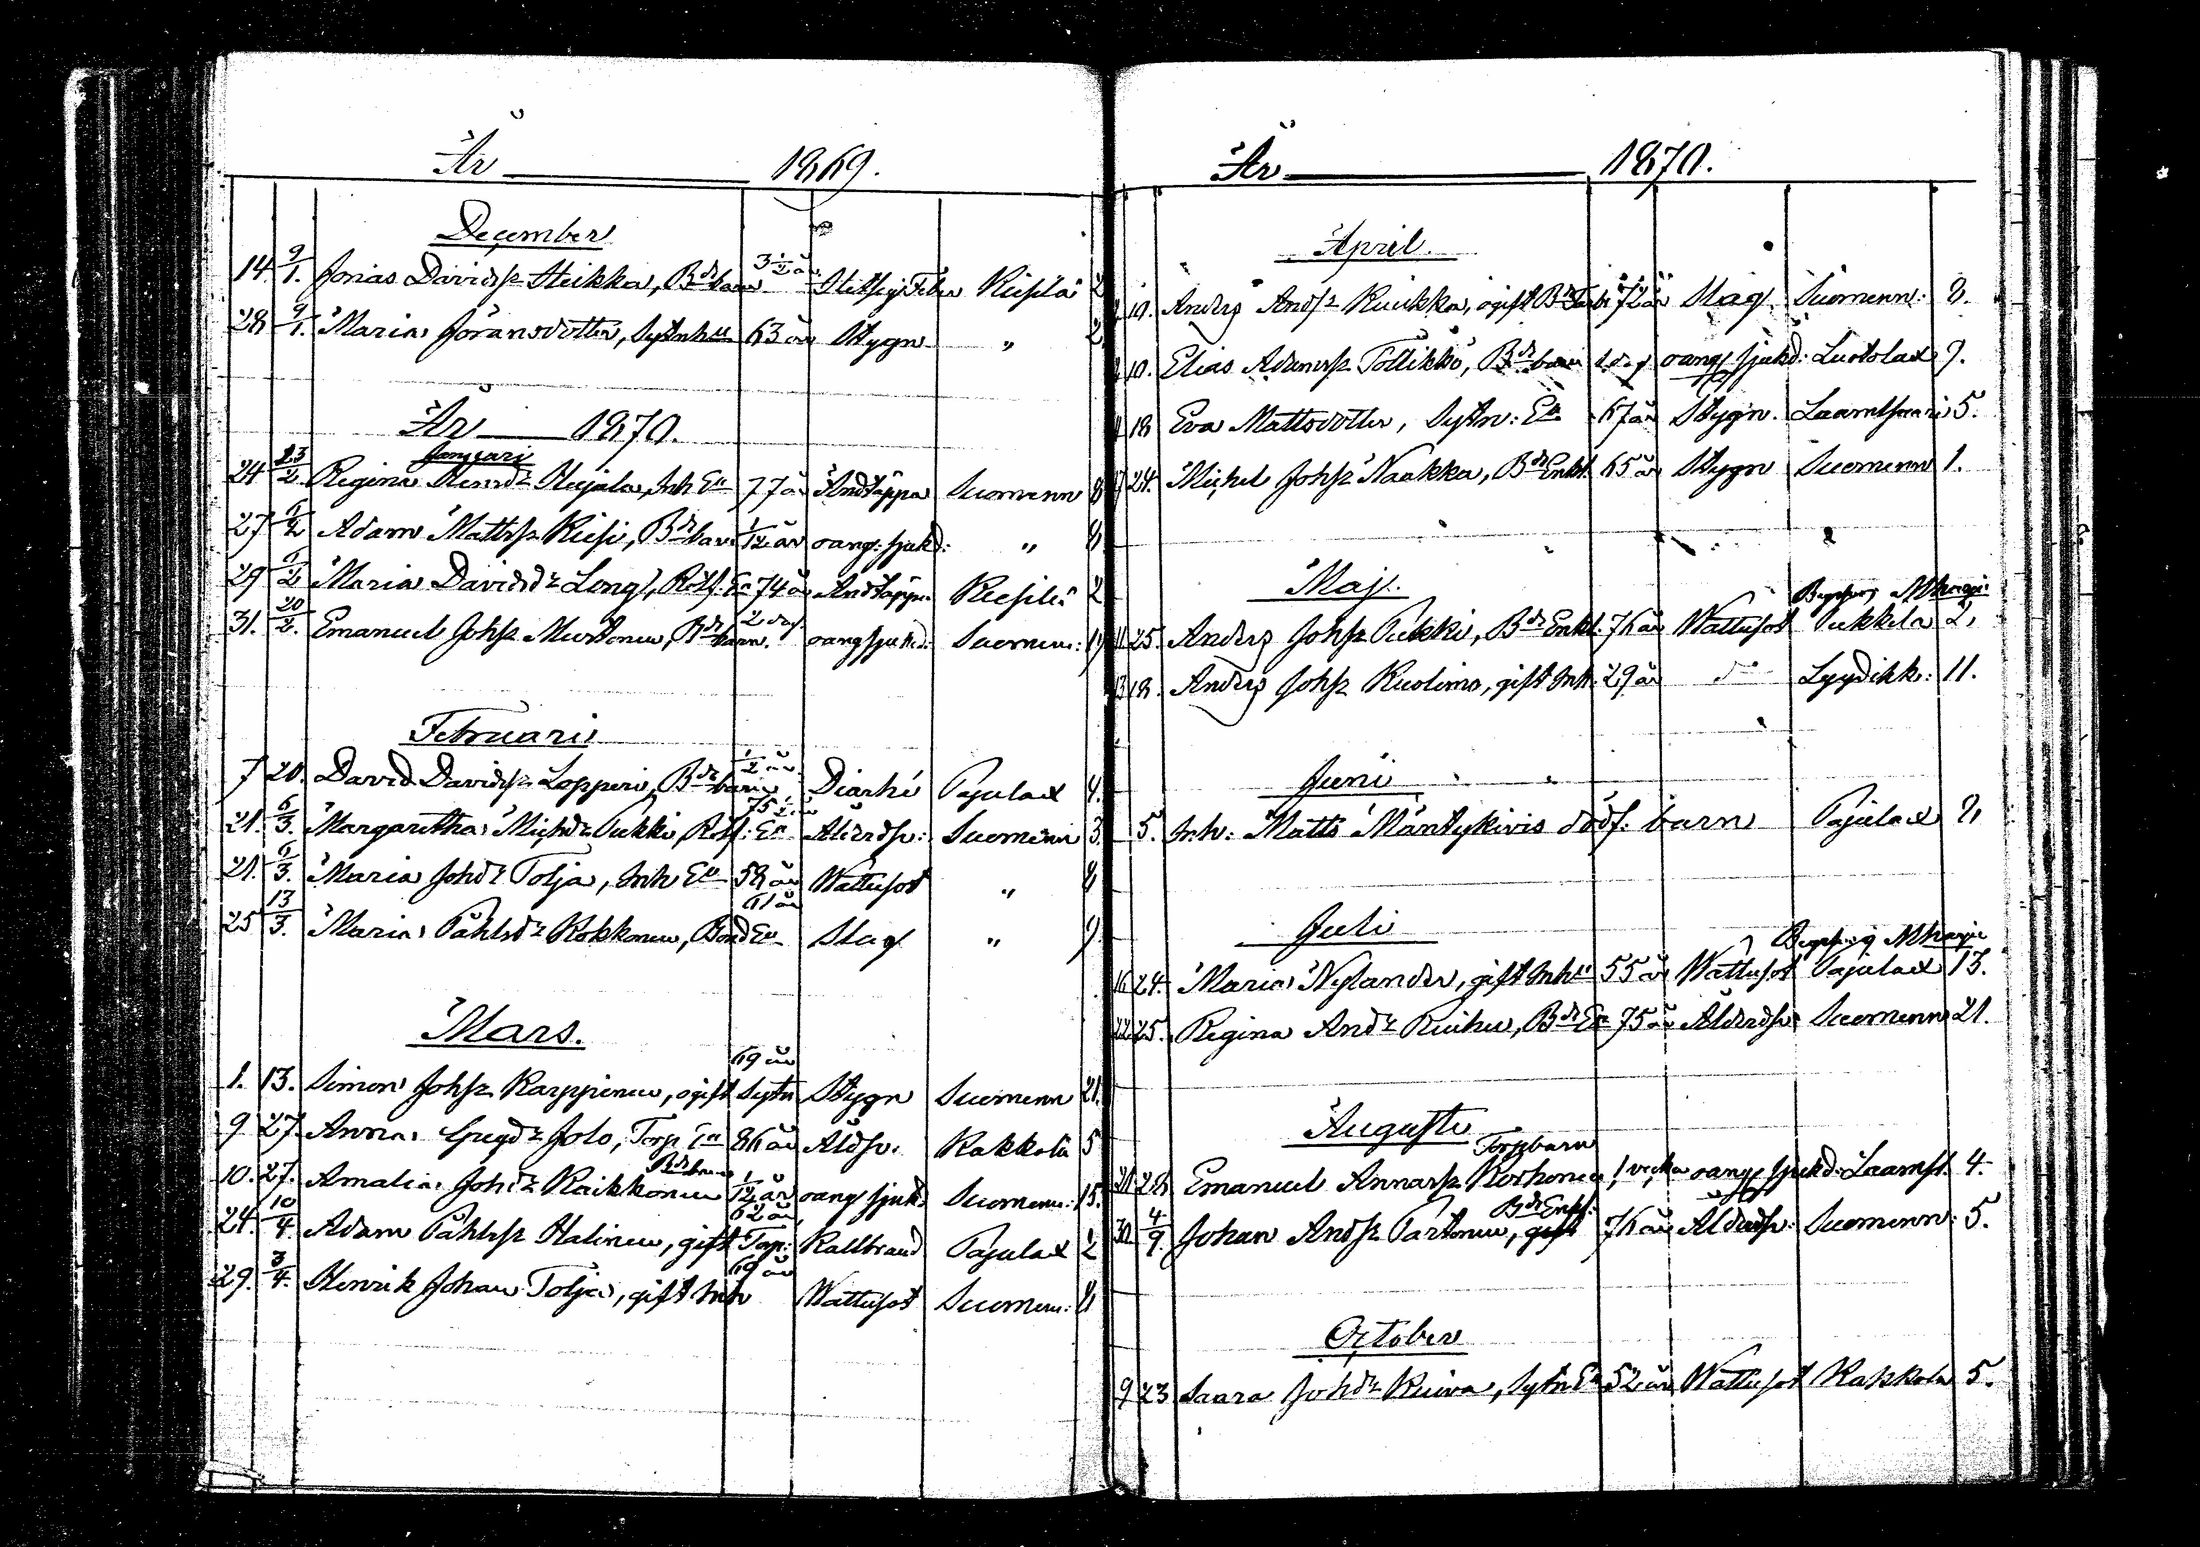 År 1869.
December
14 9/1. Jonas Davidsſn Heikka, Bdebarn 3 1/2 år Hetsig Feber Kiesilä 2
28 9/1. Maria Göransdotter, Sytnhn 63 år Stygn „ 2
År 1870.
Januari
24 23/2. Regina Henrdr Heijala, Inh En 77 år Andtäppa Suomenn 8
27 6/2 Adam Mattsſn Kiesi, Bdebarn 1/12 år oang: sjukd: „ 8
29 6/2 Maria Davidsdr Long, Rotf: En 74 år Andtäppa Kiesilä 2
31. 20/2. Emanuel Johſn Murtonen, Bdebarn. 2 dag. oang sjukd: Suomenn: 19
Februari
7 20. David Davidsſn Lopperi, Bdebarn 1/2 år Diarhé Pajulax 4.
21. 6/3. Margaretha Michdr Pukki, Rotf: En 75 1/2 år Ålderds: Suomenn 3
21. 6/3. Maria Johdr Tolja, Inh En 58 år Wattusot „ 8
25 13/3. Maria Påhlsdr Kokkonen, Bond En 61 år Slag „ 9
Mars.
1. 13. Simon Johſn Karppinen, ogift Sytn 69 år Stygn Suomenn 21.
9 27. Anna Gregdr Jolo, Torp En 86 år Åldsv. Kakkola 5
10. 27. Amalia Johdr Raikkonen Bdebarn 1/12 år oang sjukd Suomenn: 15.
24. 10/4 Adam Påhlsſn Halinen, gift Torp: 62 år Kallbrand Pajulax 2
29. 3/4. Henrik Johan Tolja, gift Inh 69 år Wattusot Suomenn: 8
År 1870.
April.
10. Anders Andſn Kuikka, ogift 72 år Slag Suomenn: 8.
10. Elias Adamsſn Töllikkö, Bdebarn 1 dag oang sjukd: Luotolax 9.
18 Eva Mattsdotter, Sytn: En 67 år Stygn. Laamspaari 5.
24. Michel Johſn Naakka, BdeEnkl. 65 år Stygn Suomenn 1.
Maj.
25. Anders Johſn Pukki, BdeEnkl. 76 år Wattusot Pukkila 2,
18. Anders Johſn Kuolimo, gift Inh. 29 år do Lyydikk: 11.
Juni
5. Inh: Matts Mäntykivis dödf: barn Pajulax 2,
Juli
16 24. Maria Nylander, gift Inhn 55 år Wattusot Pajulax 13.
22 25. Regina Anddr Kuihu, Bde En 75 år Ålderds: Suomenn 21.
Augusti
21 28 Emanuel Annasſn Korhonen Torpbarn 1 vecka oang sjukd: Laamsl. 4.
30 4/9. Johan Andſn Partonen, gift BdeEnkl: 76 år Ålderds: Suomenn: 5.
October
9 23 Saara Johdr Kuiva, Sytn En 52 år Wattusot Kakkola 5.